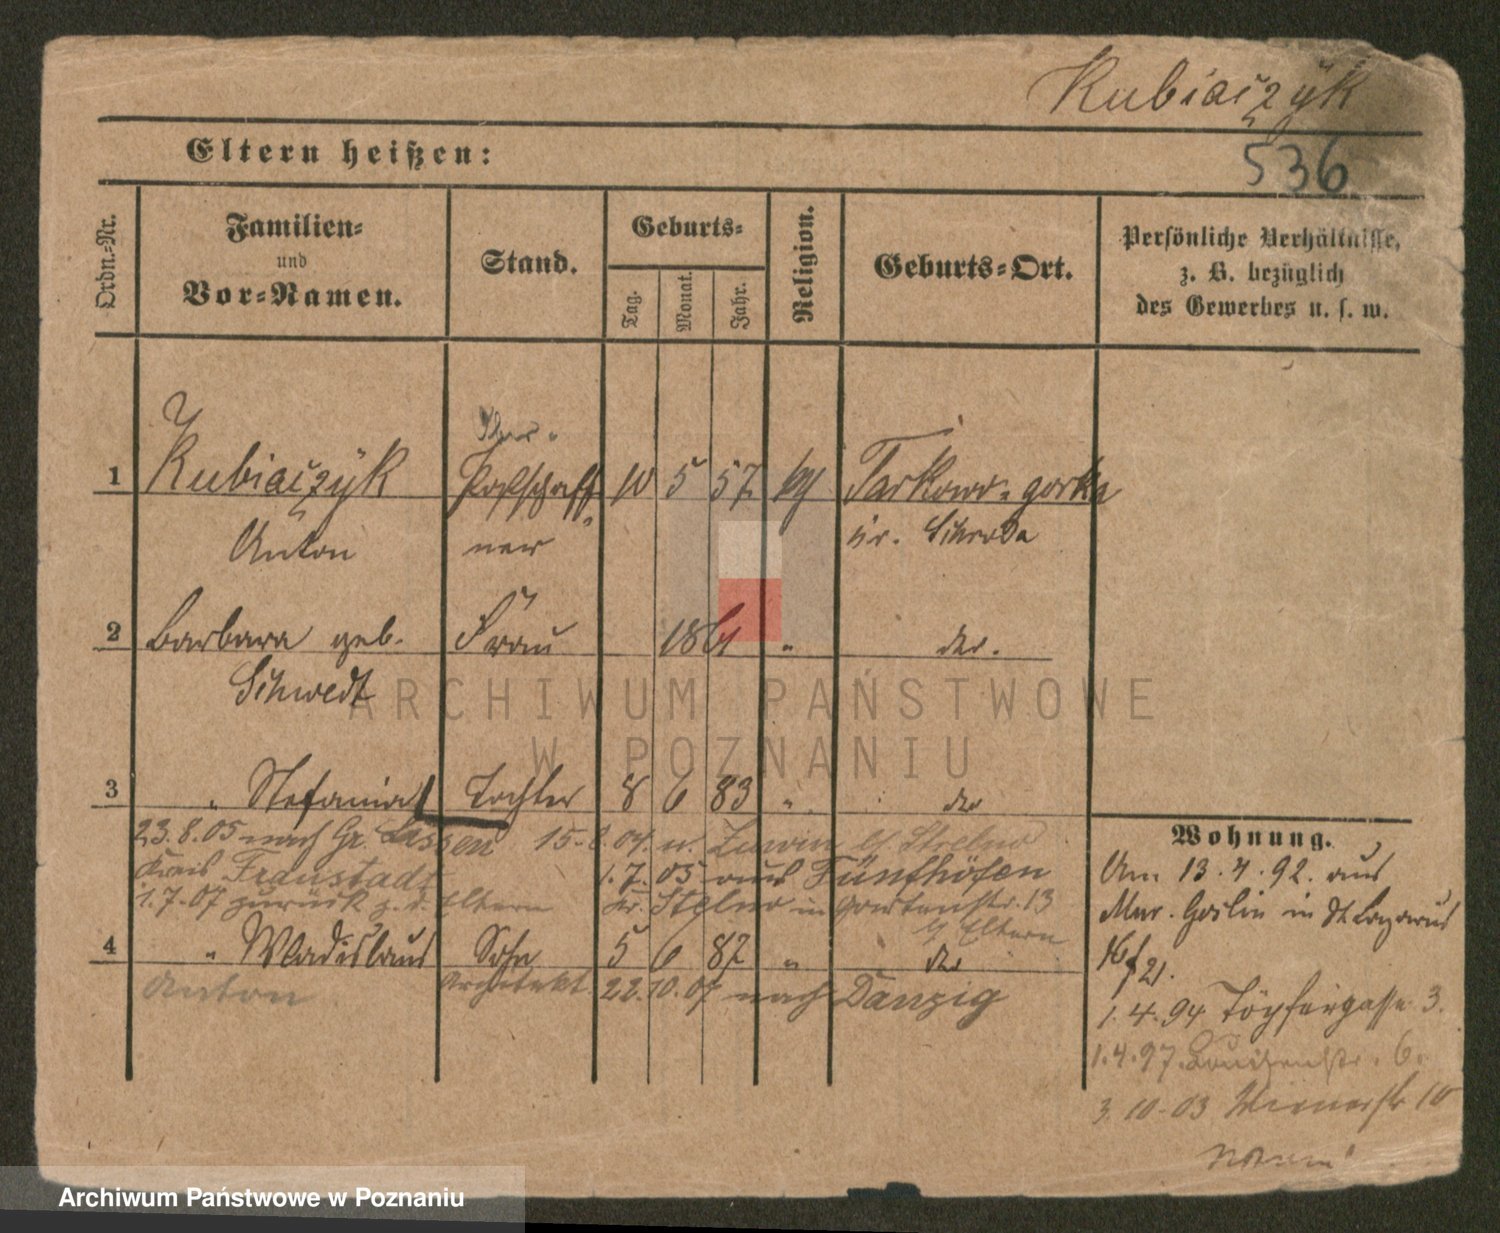 Kubiaczyk
536
Eltern heißen:
Ordn.-Nr.
Familien-
und
Vor-Namen.
Stand.
Geburts-
Tag.
Monat.
Jahr.
Religion.
Geburts-Ort.
Persönliche Verhältnisse,
z. B. bezüglich
des Gewerbes u. s. w.
1 Kubiaczyk Postschaff- 10 5 57 kth Tarkowo-gorka
Anton ner Kr. Schroda
2 Barbara geb. Frau 1861 " der.
Schwedt
3 " Stefania Tochter 8 6 83 " der
23.8.05 nach Gr. Lissen 15.8.04. n. b/ Strelno
Kreis Fraustadt 1.7.05 aus Fünfhöfen
1.7.07 zurück z. d. Eltern Kr. Strelno in Gartenstr. 13
b/ Eltern
4 " Wladislaus Sohn 5 6 87 " der
Anton Architekt 22.10.07 nach Danzig
Wohnung.
Am 13.4.92. aus
Mur. Goslin in St Lazarus
21.
1.4.94 Töpfergasse 3.
1.4.97. Louisenstr. 6.
3.10.03 Wienerstr 10
ARCHIWUM PAŃSTWOWE
W POZNANIU
Archiwum Państwowe w Poznaniu